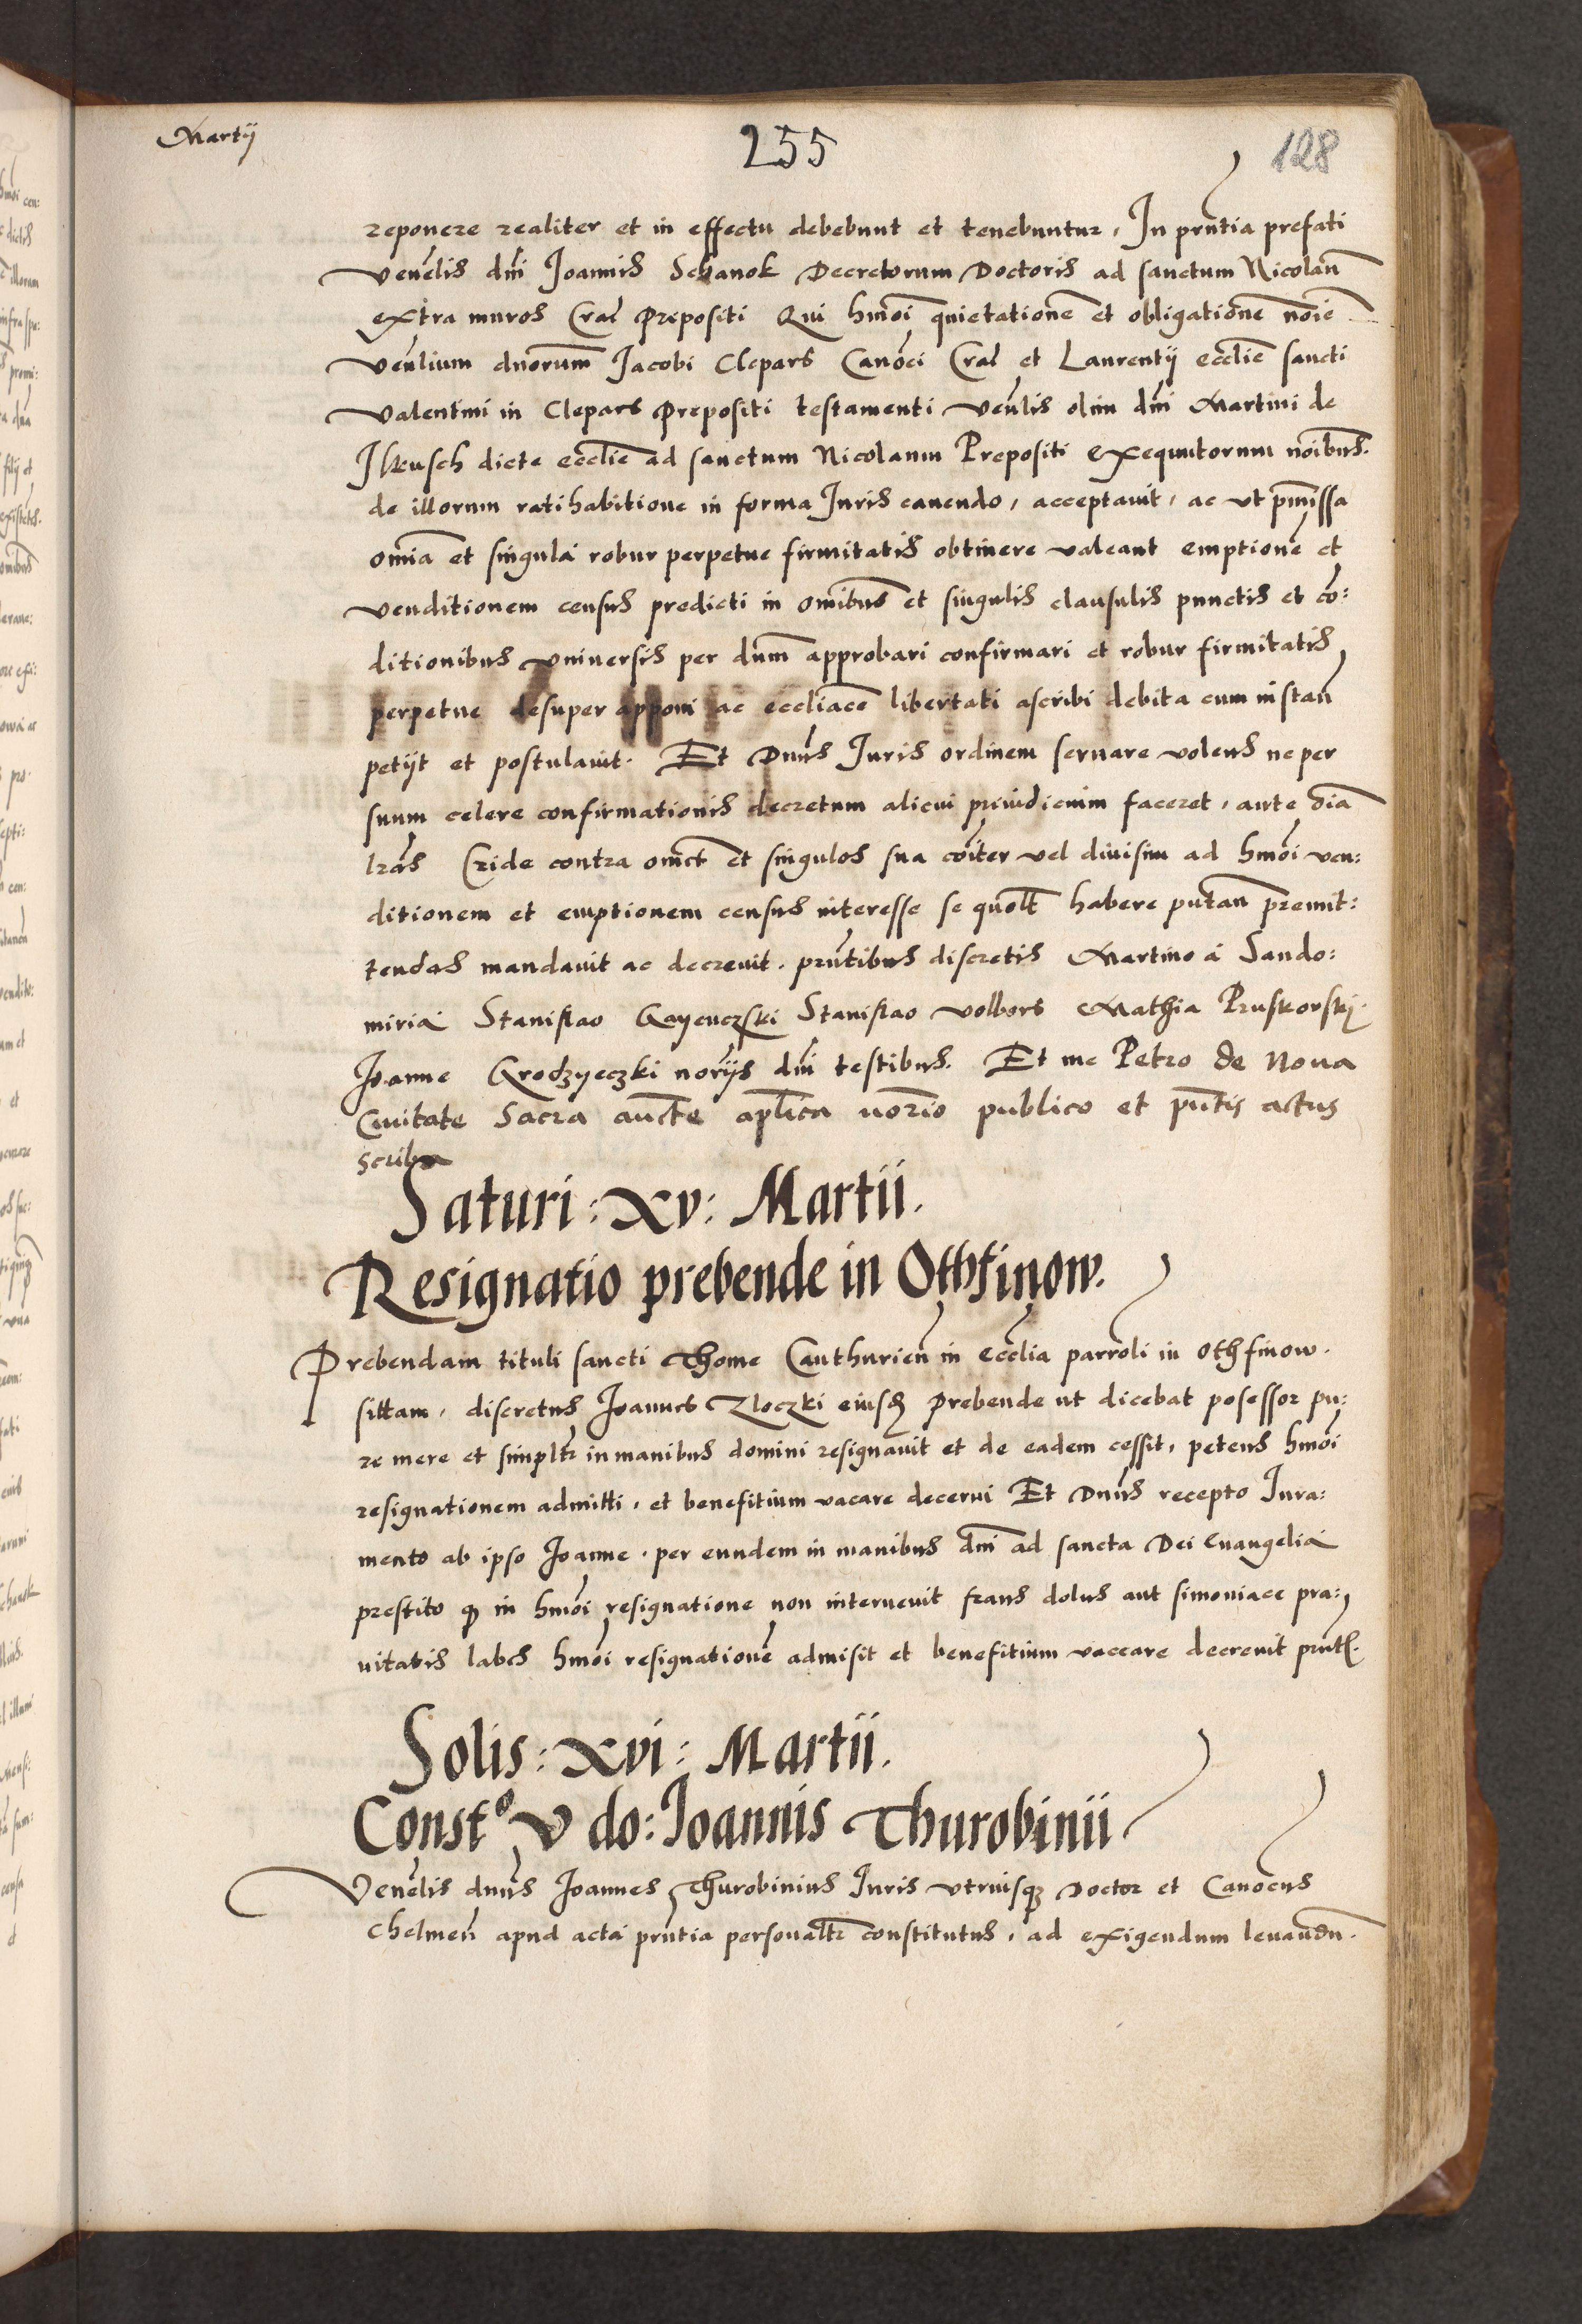 Martij
255
128
reponere realiter et in effectu debebunt et tenebuntur, In prn̄tia prefati
Venēlis dn̄i Joannis Schanok Decretorum Doctoris ad sanctum Nicolaū
extra muros Cra̅ Prepositi Qui hmōi quietationē et obligationē noīe
Venēlium dnorum Jacobi Clepars Canōci Cra̅ et Laurentij eccliē sancti
Valentini in Clepars Prepositi testamenti Venēlis olim dn̄i Martini de
Ilkusch dicte eccliē ad sanctum Nicolaum Prepositi Exequutorum noībus.
de illorum ratihabitione in forma Juris cauendo, acceptauit, ac ut p̄missa
oīmia et singula robur perpetue firmitatis obtinere valeant emptionē et
venditionem census predicti in om̄ibus et singulis clausulis punctis et cō:
ditionibus vniuersis per dnum̄ approbari confirmari et robur firmitatis
perpetue desuper apponi ac ecclīace libertati ascribi debita cum instañ
petijt et postulauit. Et Dnūs Juris ordinem seruare volens ne per
suum celere confirmationis decretum alicui preiudicium faceret, ante oīa
lrās Cride contra om̄es et singulos sua cōiter vel diuisim ad hmōi ven:
ditionem et emptionem census interesse se quolt̄ habere putañ premit:
tendas mandauit ac decreuit. prn̄tibus discretis Martino á Sando:
miria Stanislao Gayewczski Stanislao Volbors Mathia Pruskorskj.
Joanne Grodzyeczki norījs dn̄i testibus. Et me Petro de Noua
Ciuitate Sacra aucte̅ apl̄ica norīo publico et pn̄tis actus
scriba
Saturi: xv: Martii.
Resignatio prebende in Othfinow.
Prebendam tituli sancti Thome Canthurieñ in ecclīa parroli̅ in Othfinow.
sittam, discretus Joannes Zloczki eiusd̄ prebende ut dicebat posessor pu:
re mere et simplr̄ in manibus domini resignauit et de eadem cessit, petens hmōi
resignationem admitti, et benefitium vacare decerni Et Dnūs recepto Jura:
mento ab ipso Joanne, per eundem in manibus dn̄i ad sancta Dei Euangelia
prestito q̄ in hmōi resignatione non interuenit fraus dolus aut simoniace pra:
uitatis labes hmōi resignationē admisit et benefitium vaccare decreuit prn̄t.
Solis: xvi: Martii.
Const° V do: Joannis Thurobinii
Venēlis dnūs Joannes Thurobinius Juris vtriusq̄ Doctor et Canōcus
Chelmeñ apud acta prn̄tia personaltr̄ constitutus, ad exigendum leuandū.